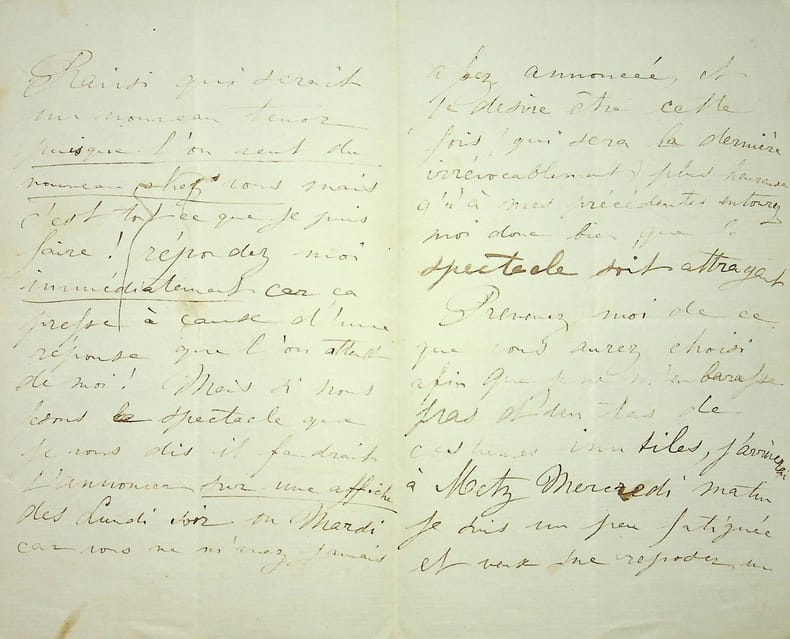 qui serait
un nouveau tenor
puisque l'on veut du
nouveau chez vous mais
c'est tout ce que je puis
faire ! répondez moi
immédiatement car ça
presse à cause d'une
réponse que l'on attend
de moi ! Mais si nous
le spectacle que
je vous dis il faudrait
l'annoncer sur une affiche
des Lundi soir ou Mardi
car vous ne m'avez jamais
assez annoncée, et
je desire être cette
fois (qui sera la dernière
irrévocablement) plus heureuse
qu'à mes précédentes entourez
moi donc bien, que le
spectacle soit attrayant
Prevenez moi de ce
que vous aurez choisi
afin que je ne m'embarasse
pas d'un tas de
costumes inutiles, j'arriverai
à Metz Mercredi matin
je suis un peu fatiguée
et veux me reposer un